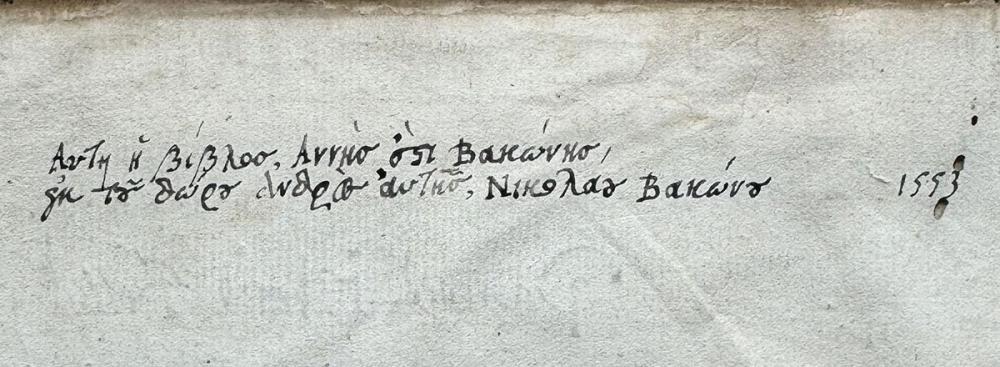 Αυτη ἡ βίβλος, Ἀννης ὅτι Βακώνης,
ἐκ τοῦ δώρου ἀνδρὸς ἀυτῆς, Νικολαου Βακώνου 1553